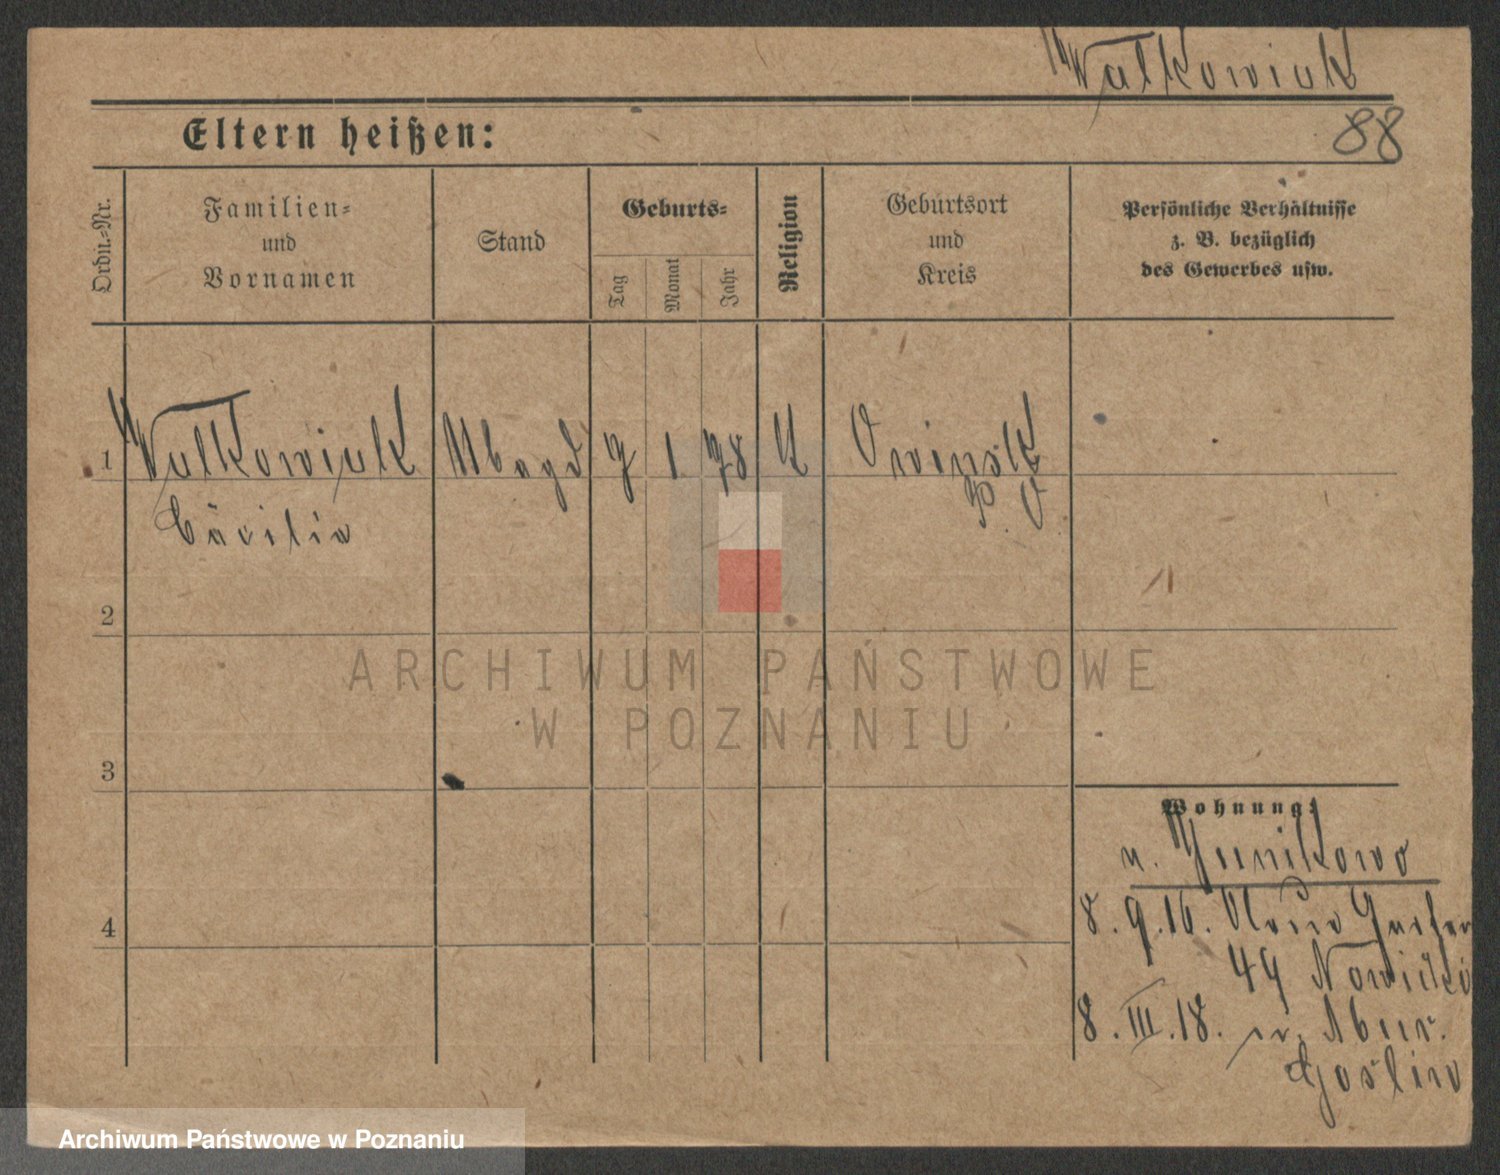 Walkowiak
88
Eltern heißen:
Ordn.-Nr.
Familien-
und
Vornamen
Stand
Geburts-
Tag
Monat
Jahr
Religion
Geburtsort
und
Kreis
Persönliche Verhältnisse
z. B. bezüglich
des Gewerbes usw.
1 Walkowiak 7 1 78 Owinsk
Cäcilie P. O
2
3
4
Wohnung:
n. Junikowo
8.9.16. Neue Garten
44 Nowicki
8.III.18. n.
Goslin
ARCHIWUM PAŃSTWOWE
W POZNANIU
Archiwum Państwowe w Poznaniu